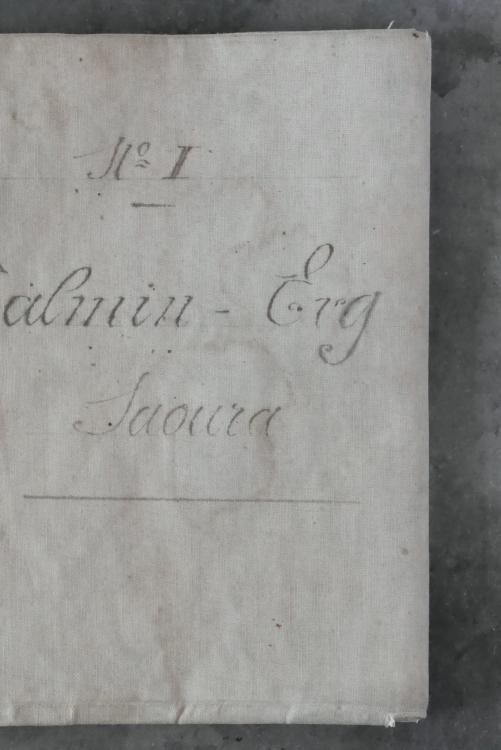 Nº I
almin - Erg
Saoura